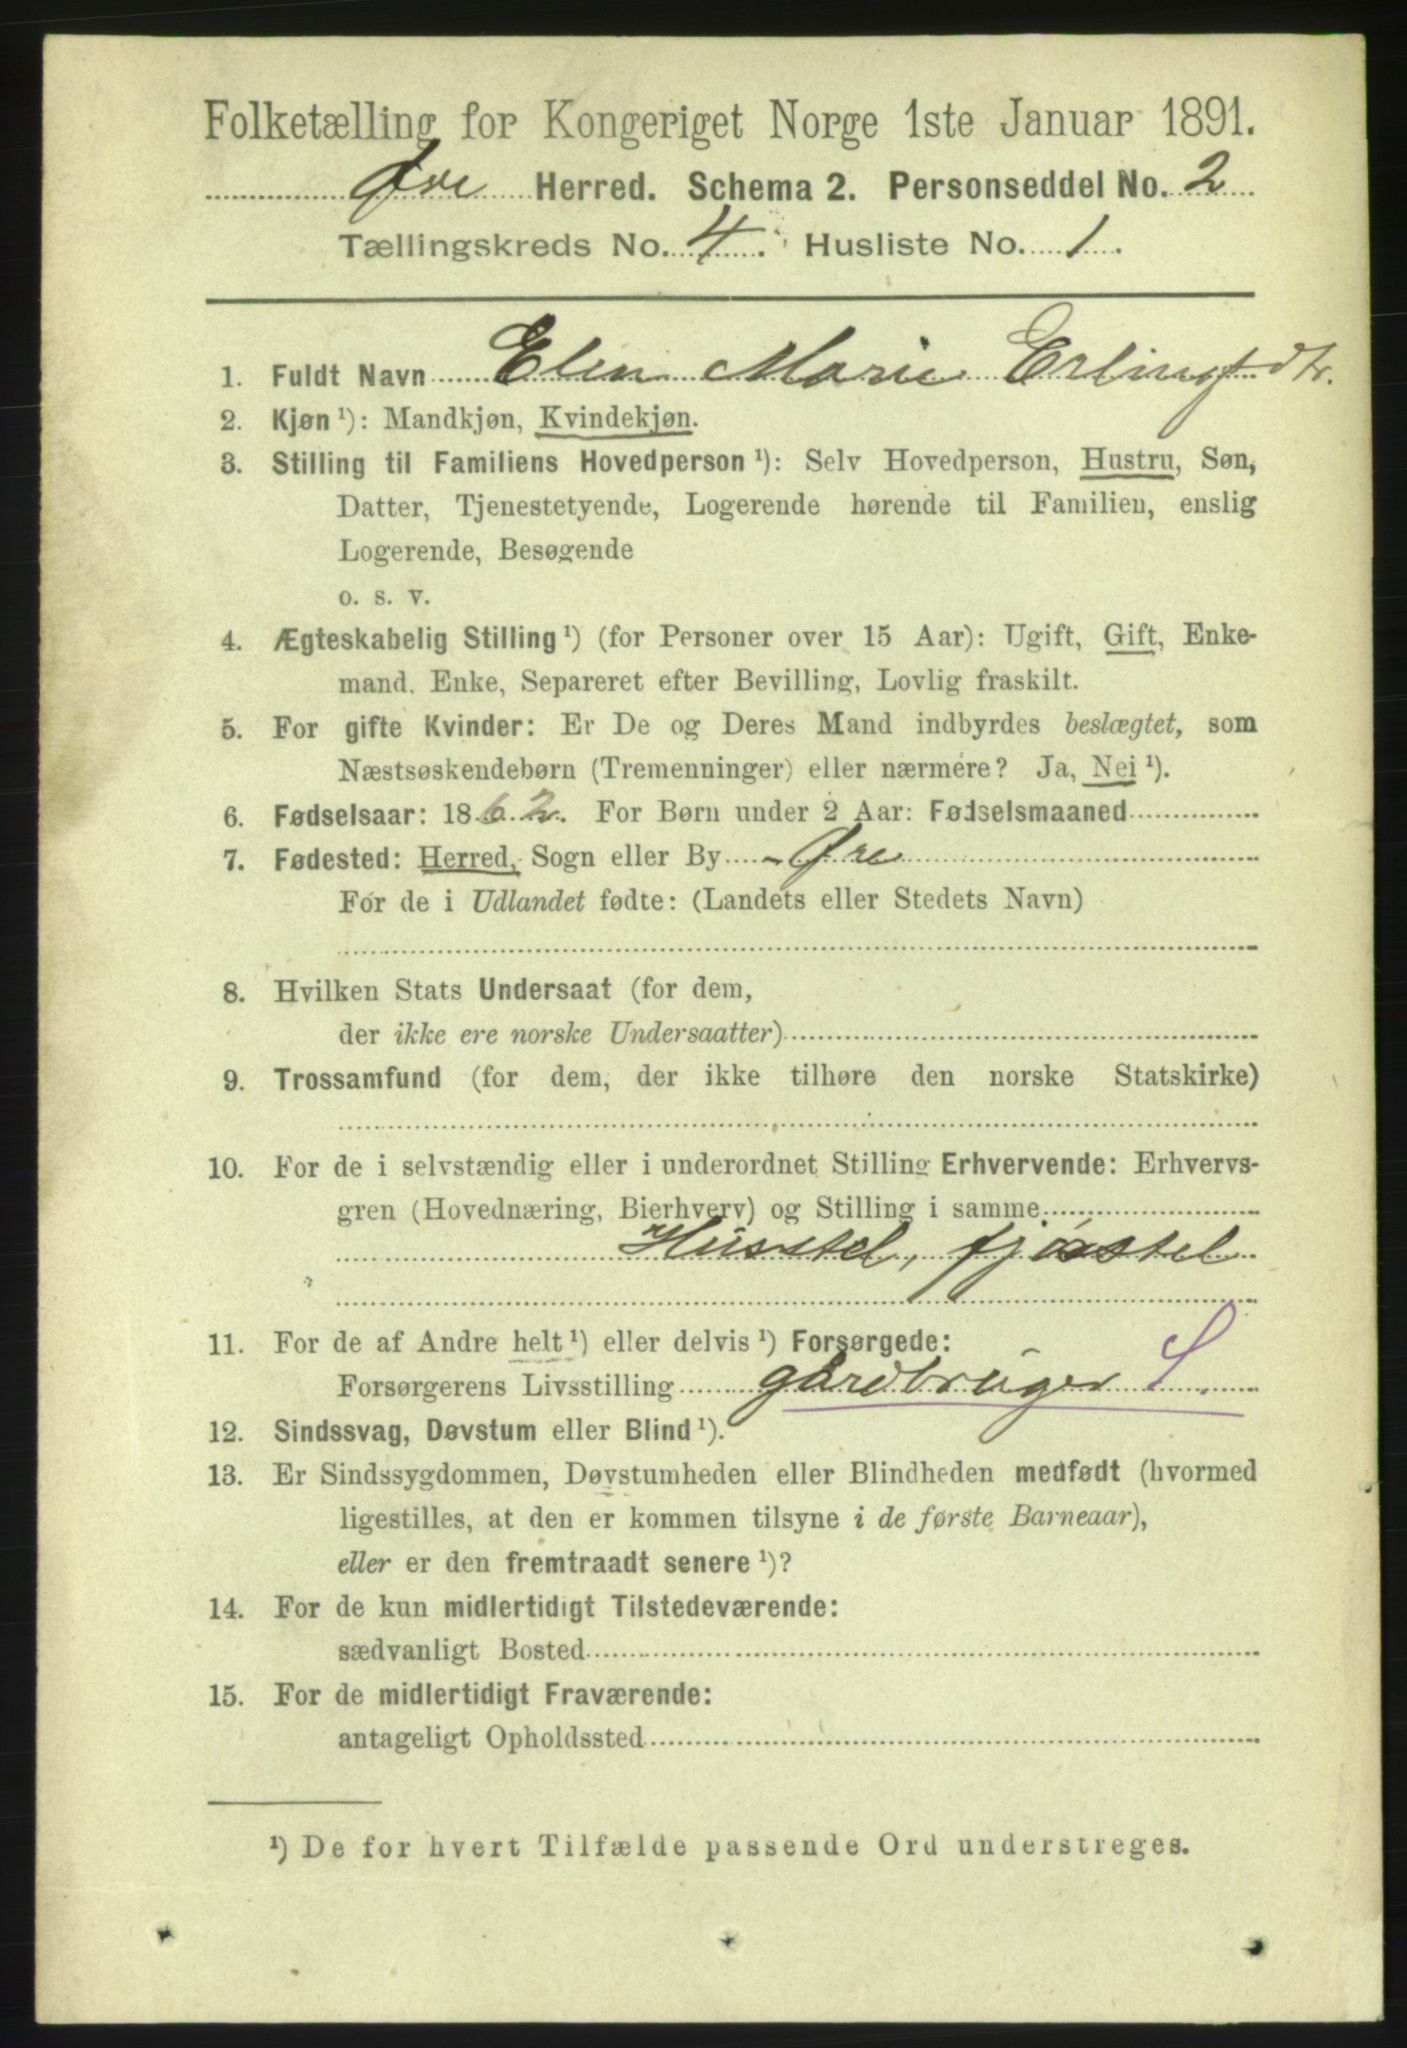 Folketælling for Kongeriget Norge 1ste Januar 1891.
Øre Herred. Schema 2. Personseddel No. 2
Tællingskreds No. 4. Husliste No. 1.
1. Fuldt Navn Elen Marie Erlingsdtr.
2. Kjøn ¹): Mandkjøn, Kvindekjøn.
3. Stilling til Familiens Hovedperson ¹): Selv Hovedperson, Hustru, Søn,
Datter, Tjenestetyende, Logerende hørende til Familien, enslig
Logerende, Besøgende
o. s. v.
4. Ægteskabelig Stilling ¹) (for Personer over 15 Aar): Ugift, Gift, Enke-
mand. Enke, Separeret efter Bevilling, Lovlig fraskilt.
5. For gifte Kvinder: Er De og Deres Mand indbyrdes beslægtet, som
Næstsøskendebørn (Tremenninger) eller nærmere? Ja, Nei ¹).
6. Fødselsaar: 1862. For Børn under 2 Aar: Fødselsmaaned
7. Fødested: Herred, Sogn eller By - Øre
For de i Udlandet fødte: (Landets eller Stedets Navn)
8. Hvilken Stats Undersaat (for dem,
der ikke ere norske Undersaatter)
9. Trossamfund (for dem, der ikke tilhøre den norske Statskirke)
10. For de i selvstændig eller i underordnet Stilling Erhvervende: Erhvervs-
gren (Hovednæring, Bierhverv) og Stilling i samme
Husstel, fjøsstel
11. For de af Andre helt ¹) eller delvis ¹) Forsørgede:
Forsørgerens Livsstilling gårdbruger S.
12. Sindssvag, Døvstum eller Blind ¹).
13. Er Sindssygdommen, Døvstumheden eller Blindheden medfødt (hvormed
ligestilles, at den er kommen tilsyne i de første Barneaar),
eller er den fremtraadt senere ¹)?
14. For de kun midlertidigt Tilstedeværende:
sædvanligt Bosted
15. For de midlertidigt Fraværende:
antageligt Opholdssted
¹) De for hvert Tilfælde passende Ord understreges.